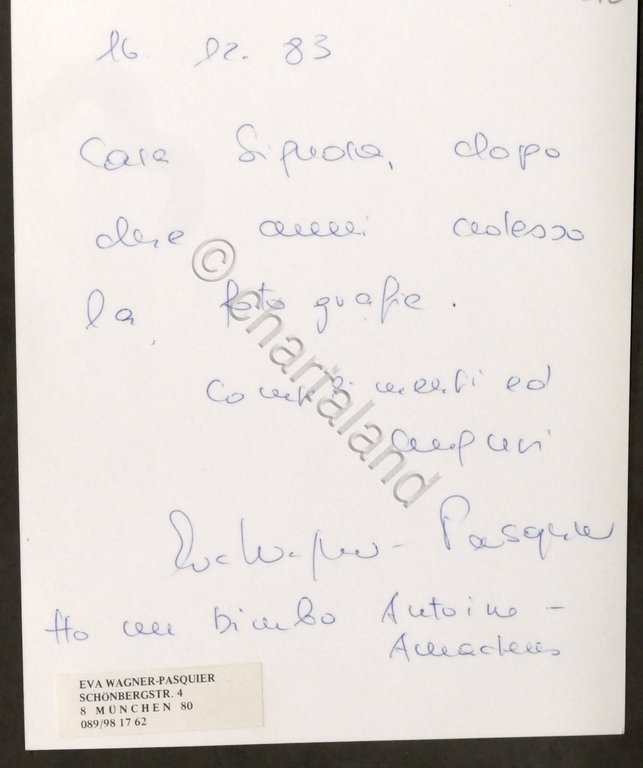 16. 12. 83
Cara Signora, dopo
due anni adesso
la fotografie.
Complimenti ed
auguri
Eva Wagner-Pasquier
Ho un bimbo Antoine-
Amadeus
EVA WAGNER-PASQUIER
SCHÖNBERGSTR. 4
8 MÜNCHEN 80
089/98 17 62
© chartaland